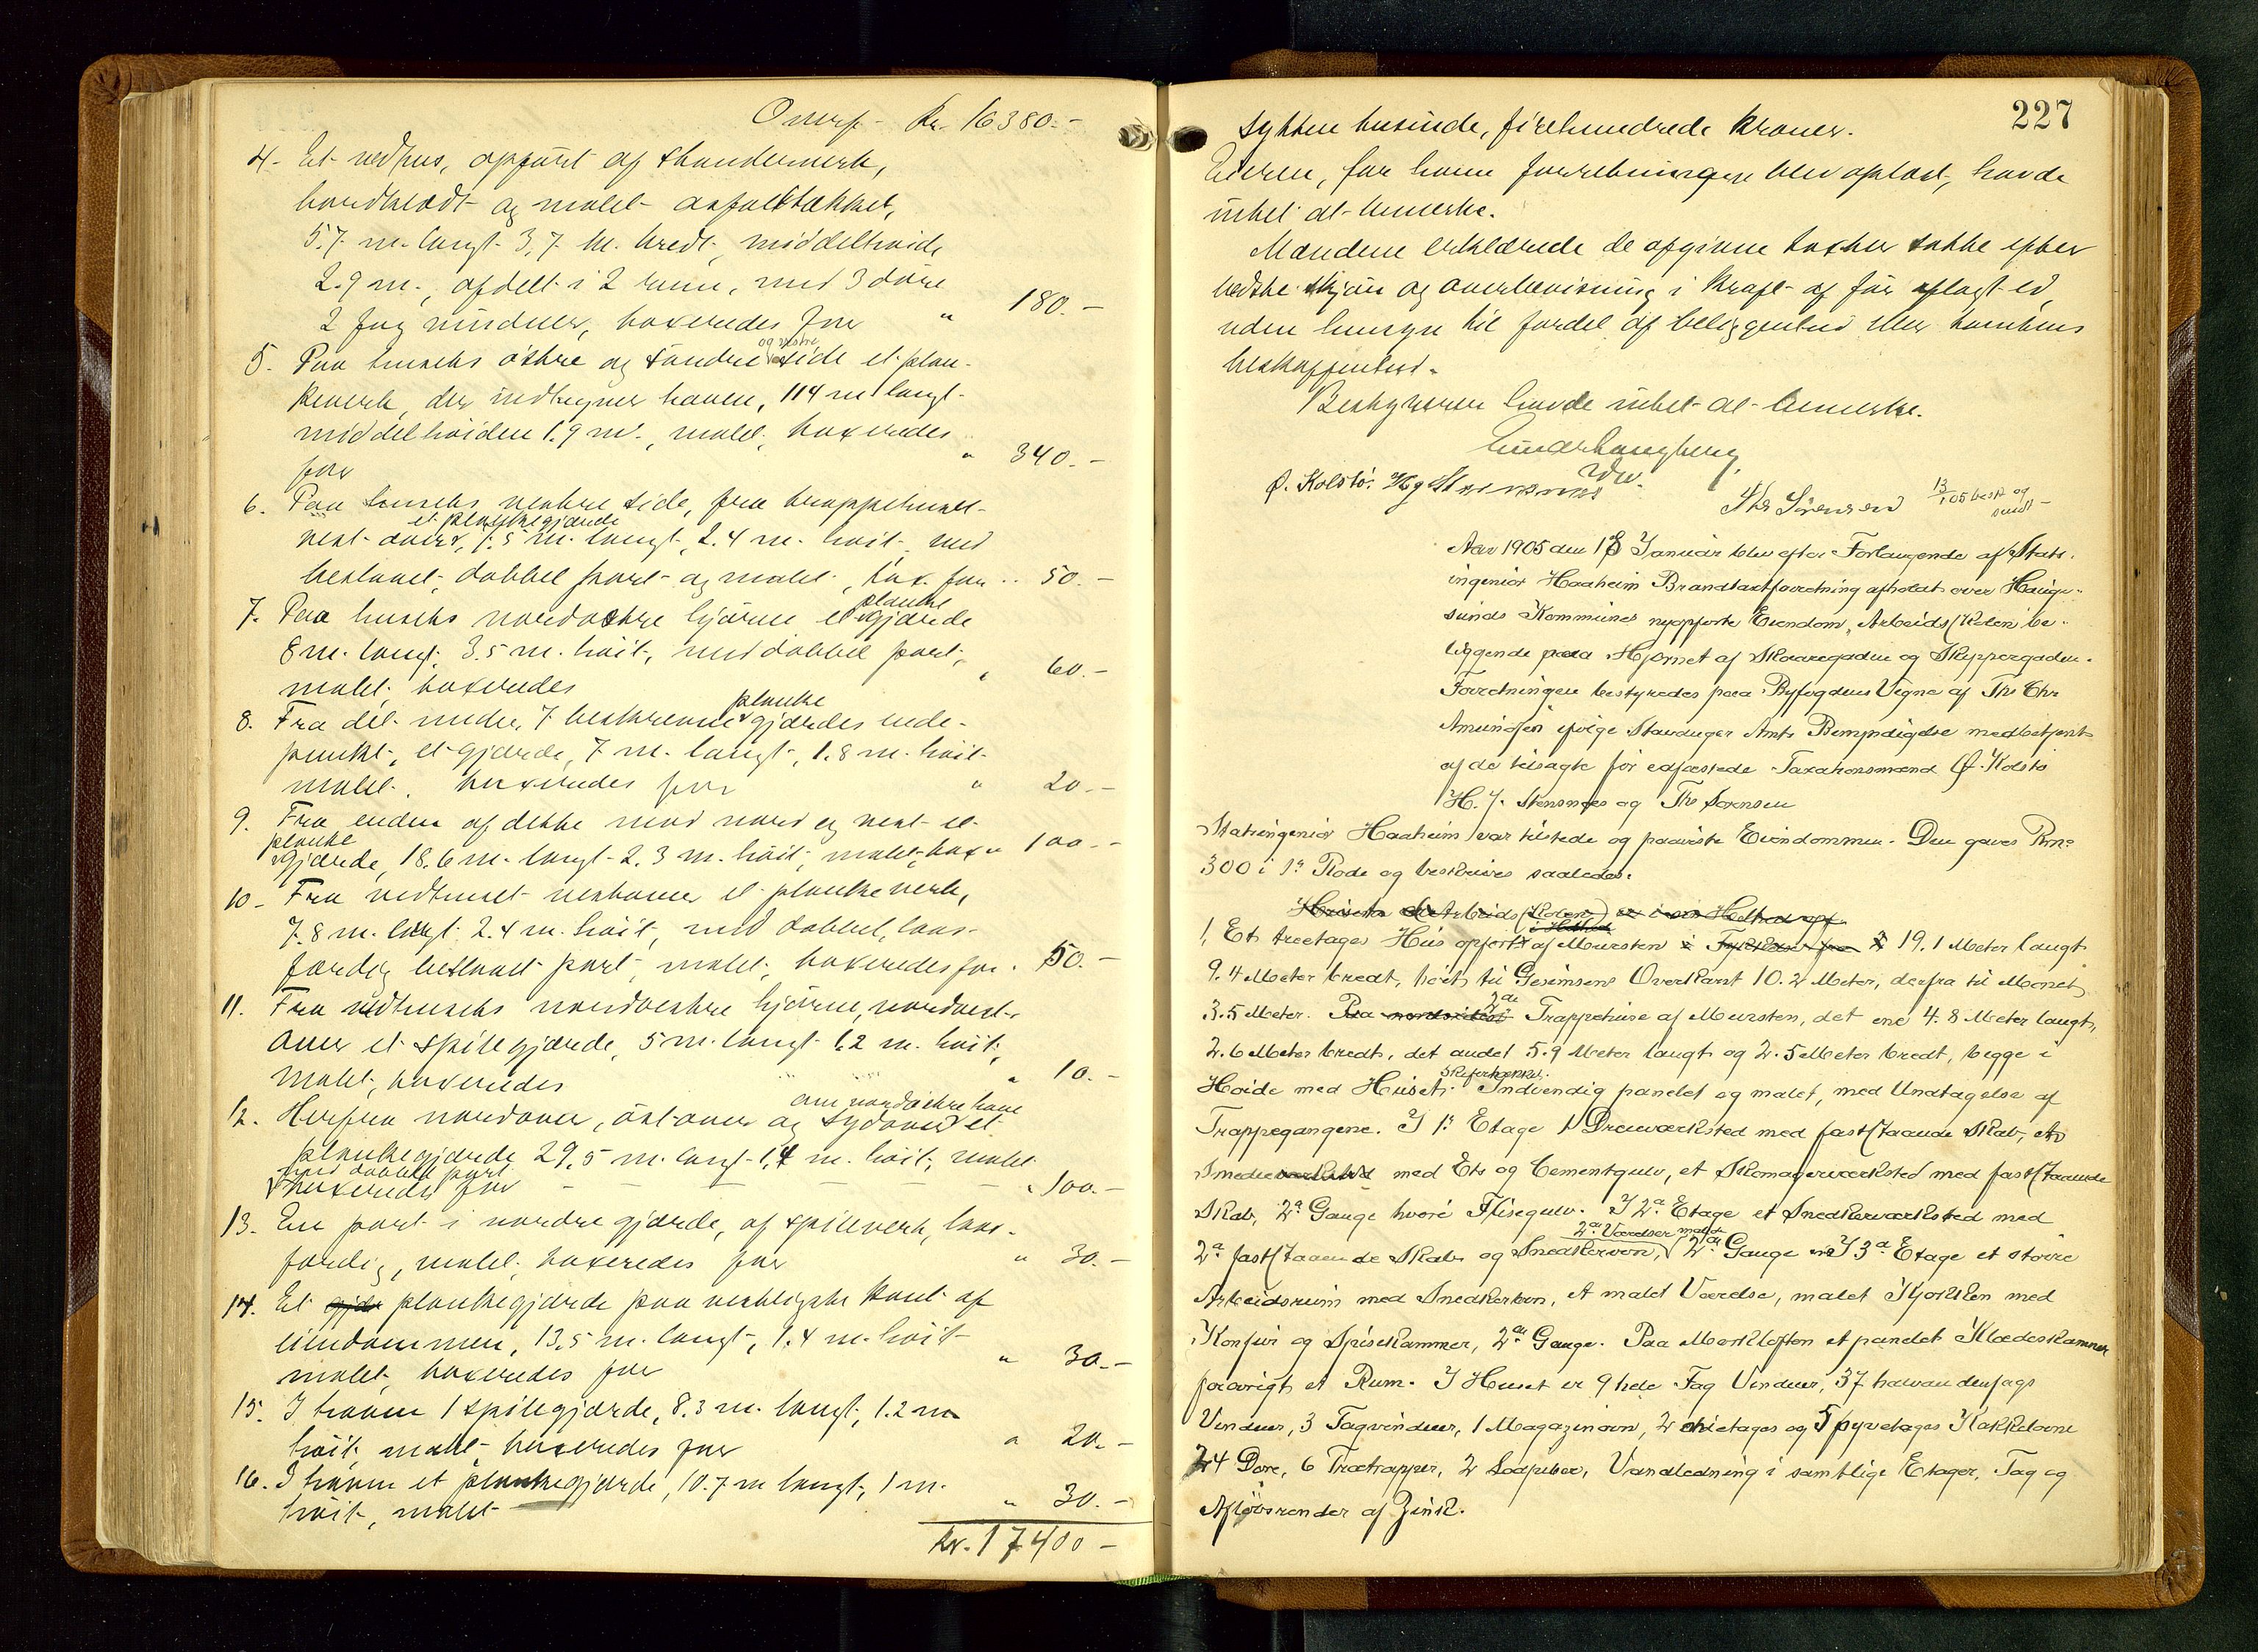 Overf. Kr. 16380.-
4. Et vedhus, opført af stenderverk,
bordklædt og malet asfalttækket,
5.7 m. langt 3,7 m. bredt, middelhøide
2.9 m., afdelt i 2 rum, med 3 døre
2 fag vinduer, taxeredes for " 180.-
og vestre
5. Paa husets østre og søndre side et plan-
keverk, der indhegner haven, 114 m langt
middelhøiden 1.9 m., malet, taxeredes
for " 340.-
6. Paa husets vestre side, fra trappehuset
et plankegjærde
vest over, 1.5 m. langt, 2.4 m. høit med
beslaaet dobbel port og malet, tax. for .. 50.-
planke
7. Paa husets nordøstre hjørne et gjærde
8 m. langt, 3.5 m. høit, med dobbel port,
malet taxeredes " 60.-
planke
8. Fra det under 7 beskrevne gjærdes ende-
punkt, et gjærde, 7 m. langt, 1.8 m. høit
malet. taxeredes for " 20.-
9. Fra enden af dette mod nord og vest et
planke
gjærde, 18.6 m. langt 2.3 m. høit, malet, tax " 100.-
10. Fra vedhuset vestover et plankeverk,
7.8 m. langt 2.4 m. høit, med dobbel, laas-
færdig beslaaet port, malet, taxeredes for . 50.-
11. Fra vedhusets nordvestre hjørne, nordvest-
over et spilegjærde, 5 m. langt 1.2 m. høit,
malet, taxeredes " 10.-
om nordøstre have
12. Herfra nordover, østover og sydover et
plankegjærde 29.5 m. langt 1,4 m. høit, malet
med dobbelt port
taxeredes for " 100.-
13. En port i nordre gjærde, af spileverk, laas-
færdig, malet, taxeredes for " 30.-
14. Et gjær plankegjærde paa vestligste kant af
eiendommen, 13.5 m. langt, 1.4 m. høit
malet, taxeredes for " 30.-
15. I haven 1 spilegjærde, 8.3 m. langt, 1.2 m
høit, malet taxeredes for " 20.-
16. I haven et plankegjærde, 10.7 m langt, 1 m.
høit, malet " 30.-
Kr. 17400 -
227
sytten tusinde, firehundrede kroner.
Eieren, for hvem forretningen blev oplæst, havde
intet at bemerke.
Mændene erklærede de afgivne taxter satte efter
bedste skjøn og overbevisning i kraft af før aflagt ed,
uden hensyn til fordel af beliggenhed eller tomtens
beskaffenhed.
Bestyreren havde intet at bemerke.
Ø. Kolstø.
Ths Sørensen
13/1 05 besk og
Aar 1905 den 18 Januar blev efter Forlangende af Stads-
ingeniør Haaheim Brandtaxtforretning afholdt over Hauge-
sunds Kommunes nyopførte Eiendom, Arbeidsskolen be-
liggende paa Hjørnet af Skaaregaden og Skippergaden.
Forretningen bestyredes paa Byfogdens Vegne af Ths Chr
Amundsen ifølge Stavanger Amts Bemyndigelse medbetjent
af de tilsagte før edfæstede Taxationsmænd Ø. Kolstø
H. J. Stensnæs og Ths Sørensen
Stadsingeniør Haaheim var tilstede og paaviste Eiendommen. Den gaves Brn:
300 i 1ª Rode og beskrives saaledes.
Arbeidsskolen er i sin Helhed opf
i Helhed
1, Et treetages Hus opført af Mursten 19.1 Meter langt
9.4 Meter bredt, høit til Gesimsens Overkant 10.2 Meter, derfra til Mønet
2de
3.5 Meter. Paa Trappehuse af Mursten, det ene 4.8 Meter langt,
2.6 Meter bredt, det andet 5.9 Meter langt og 2.5 Meter bredt, begge i
Skifertækket.
Høide med Huset. Indvendig panelet og malet, med Undtagelse af
Trappegangene. I 1ª Etage 1 Dreieværksted med faststaaende Skab, et
Smedieværksted med Ets og Cementgulv, et Skomagerværksted med faststaaende
Skab, 2ª Gange hvori Flisegulv. I 2ª Etage et Snedkerværksted med
2de Værelser malede
2ª faststaaende Skab og Snedkerovn, 2de Gange I 3ª Etage et større
Arbeidsrum med Snedkerovn, et malet Værelse, malet Kjøkken med
Komfur og Spisekammer, 2de Gange. Paa Mørkloften et panelet Klædeskammer
forøvrigt et Rum. I Huset er 9 hele Fag Vinduer, 37 halvandenfags
Vinduer, 3 Tagvinduer, 1 Magazinovn, 2 etages og 5 fyretages Kakkelovne
24 Døre, 6 Trætrapper, 2 Sodpiber, Vandledning i samtlige Etager, Tag og
Afløbsrender af Zink.